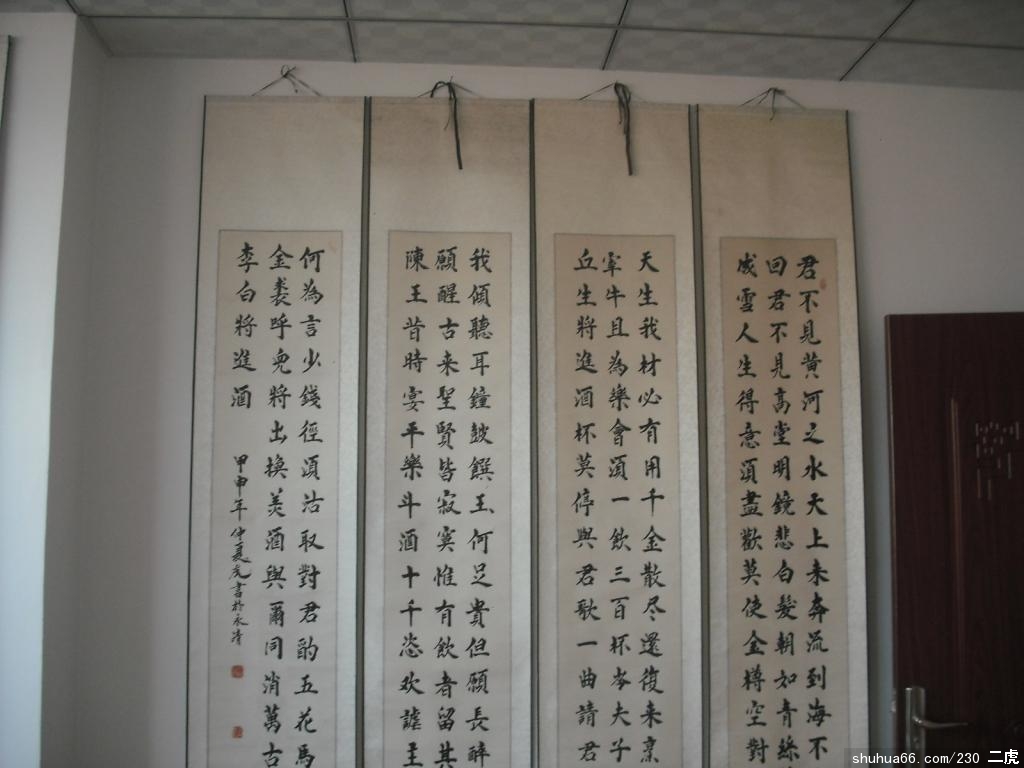 君不見黄河之水天上来奔流到海不
回君不見高堂明鏡悲白髮朝如青絲
成雪人生得意須盡歡莫使金樽空對
天生我材必有用千金散尽還復来烹
宰牛且為樂會須一飲三百杯岑夫子
丘生將進酒杯莫停與君歌一曲請君
我傾聽耳鐘鼓饌玉何足貴但願長醉
願醒古来聖賢皆寂寞惟有飲者留其
陳王昔時宴平樂斗酒十千恣欢謔主
何為言少錢徑須沽取對君酌五花馬
金裘呼兒將出換美酒與爾同消萬古
李白將進酒 甲申年仲夏虎書於永清
shuhua66.com/230 二虎